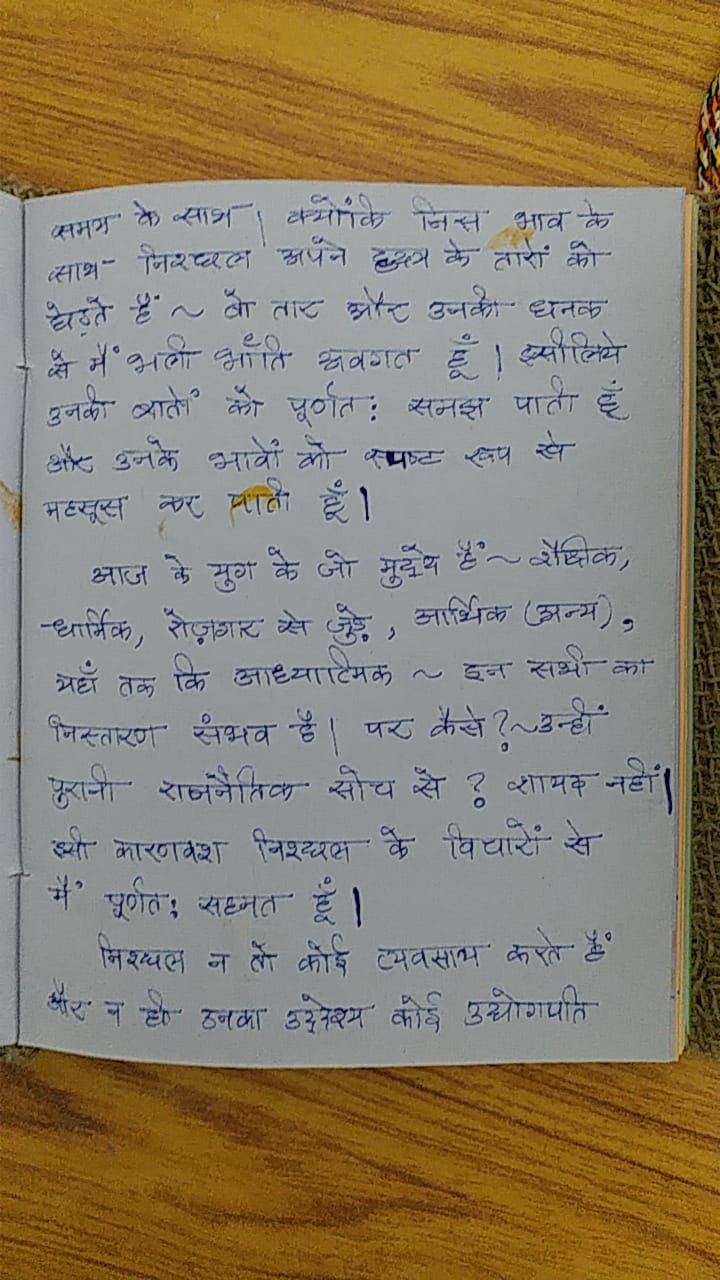 समय के साथ | क्योंकि जिस भाव के
साथ निश्छल अपने हृदय के तारों को
छेड़ते हैं ~ वो तार और उनकी धनक
से मैं भली भाँति अवगत हूँ | इसीलिये
उनकी बातों को पूर्णत: समझ पाती हूँ
और उनके भावों को स्पष्ट रूप से
महसूस कर पाती हूँ |
आज के युग के जो मुद्दे हैं ~ शैक्षिक,
धार्मिक, रोज़गार से जुड़े, आर्थिक (अन्य),
यहाँ तक कि आध्यात्मिक ~ इन सभी का
निस्तारण संभव है | पर कैसे? ~ उन्हीं
पुरानी राजनैतिक सोच से ? शायद नहीं |
इसी कारणवश निश्छल के विचारों से
मैं पूर्णत: सहमत हूँ |
निश्छल न तो कोई व्यवसाय करते हैं
और न ही उनका उद्देश्य कोई उद्योगपति